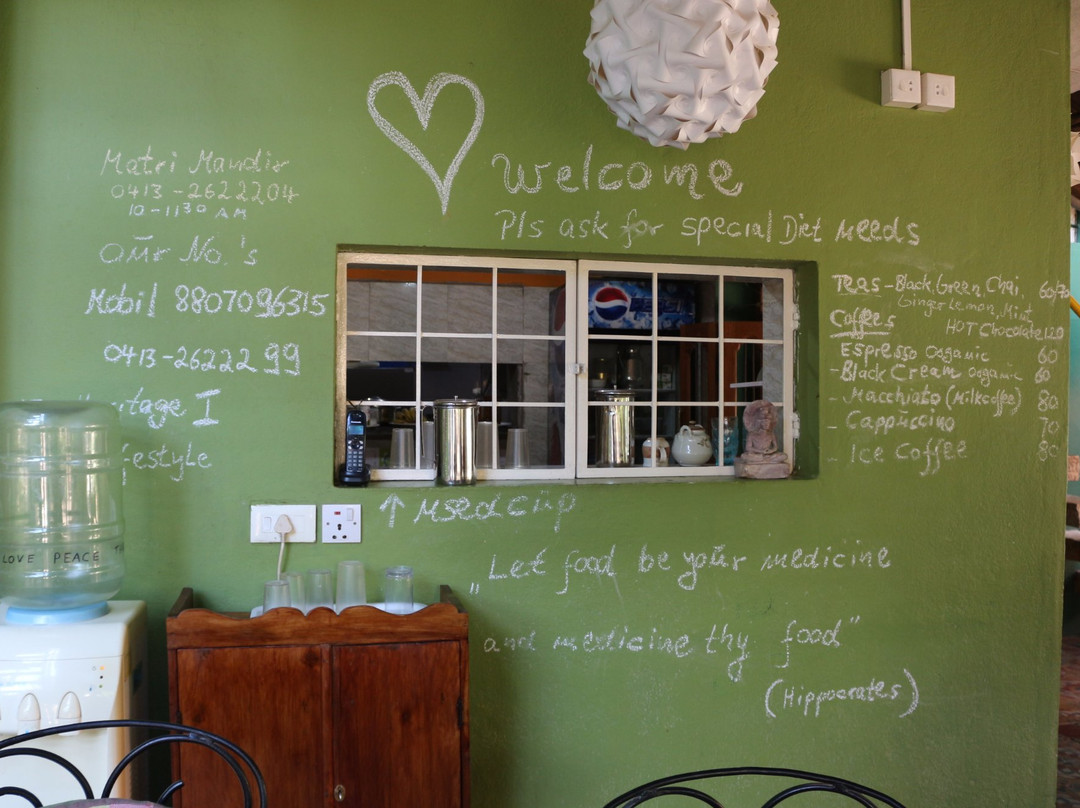 Matri Mandir
0413-2622204
10-1130 AM
Our No.'s
Mobil 8807096315
0413-2622299
I
LOVE PEACE
Welcome
Pls ask for special Diet needs
pepsi
Teas - Black, Green, Chai, 60/70
Ginger Lemon, Mint
Coffees HOT Chocolate 120
Espresso Organic 60
- Black Cream organic 60
- Macchiato (Milkcoffee) 80
- Cappuccino 70
- Ice Coffee 80
↑ used cup
„Let food be your medicine
and medicine thy food"
(Hippocrates)